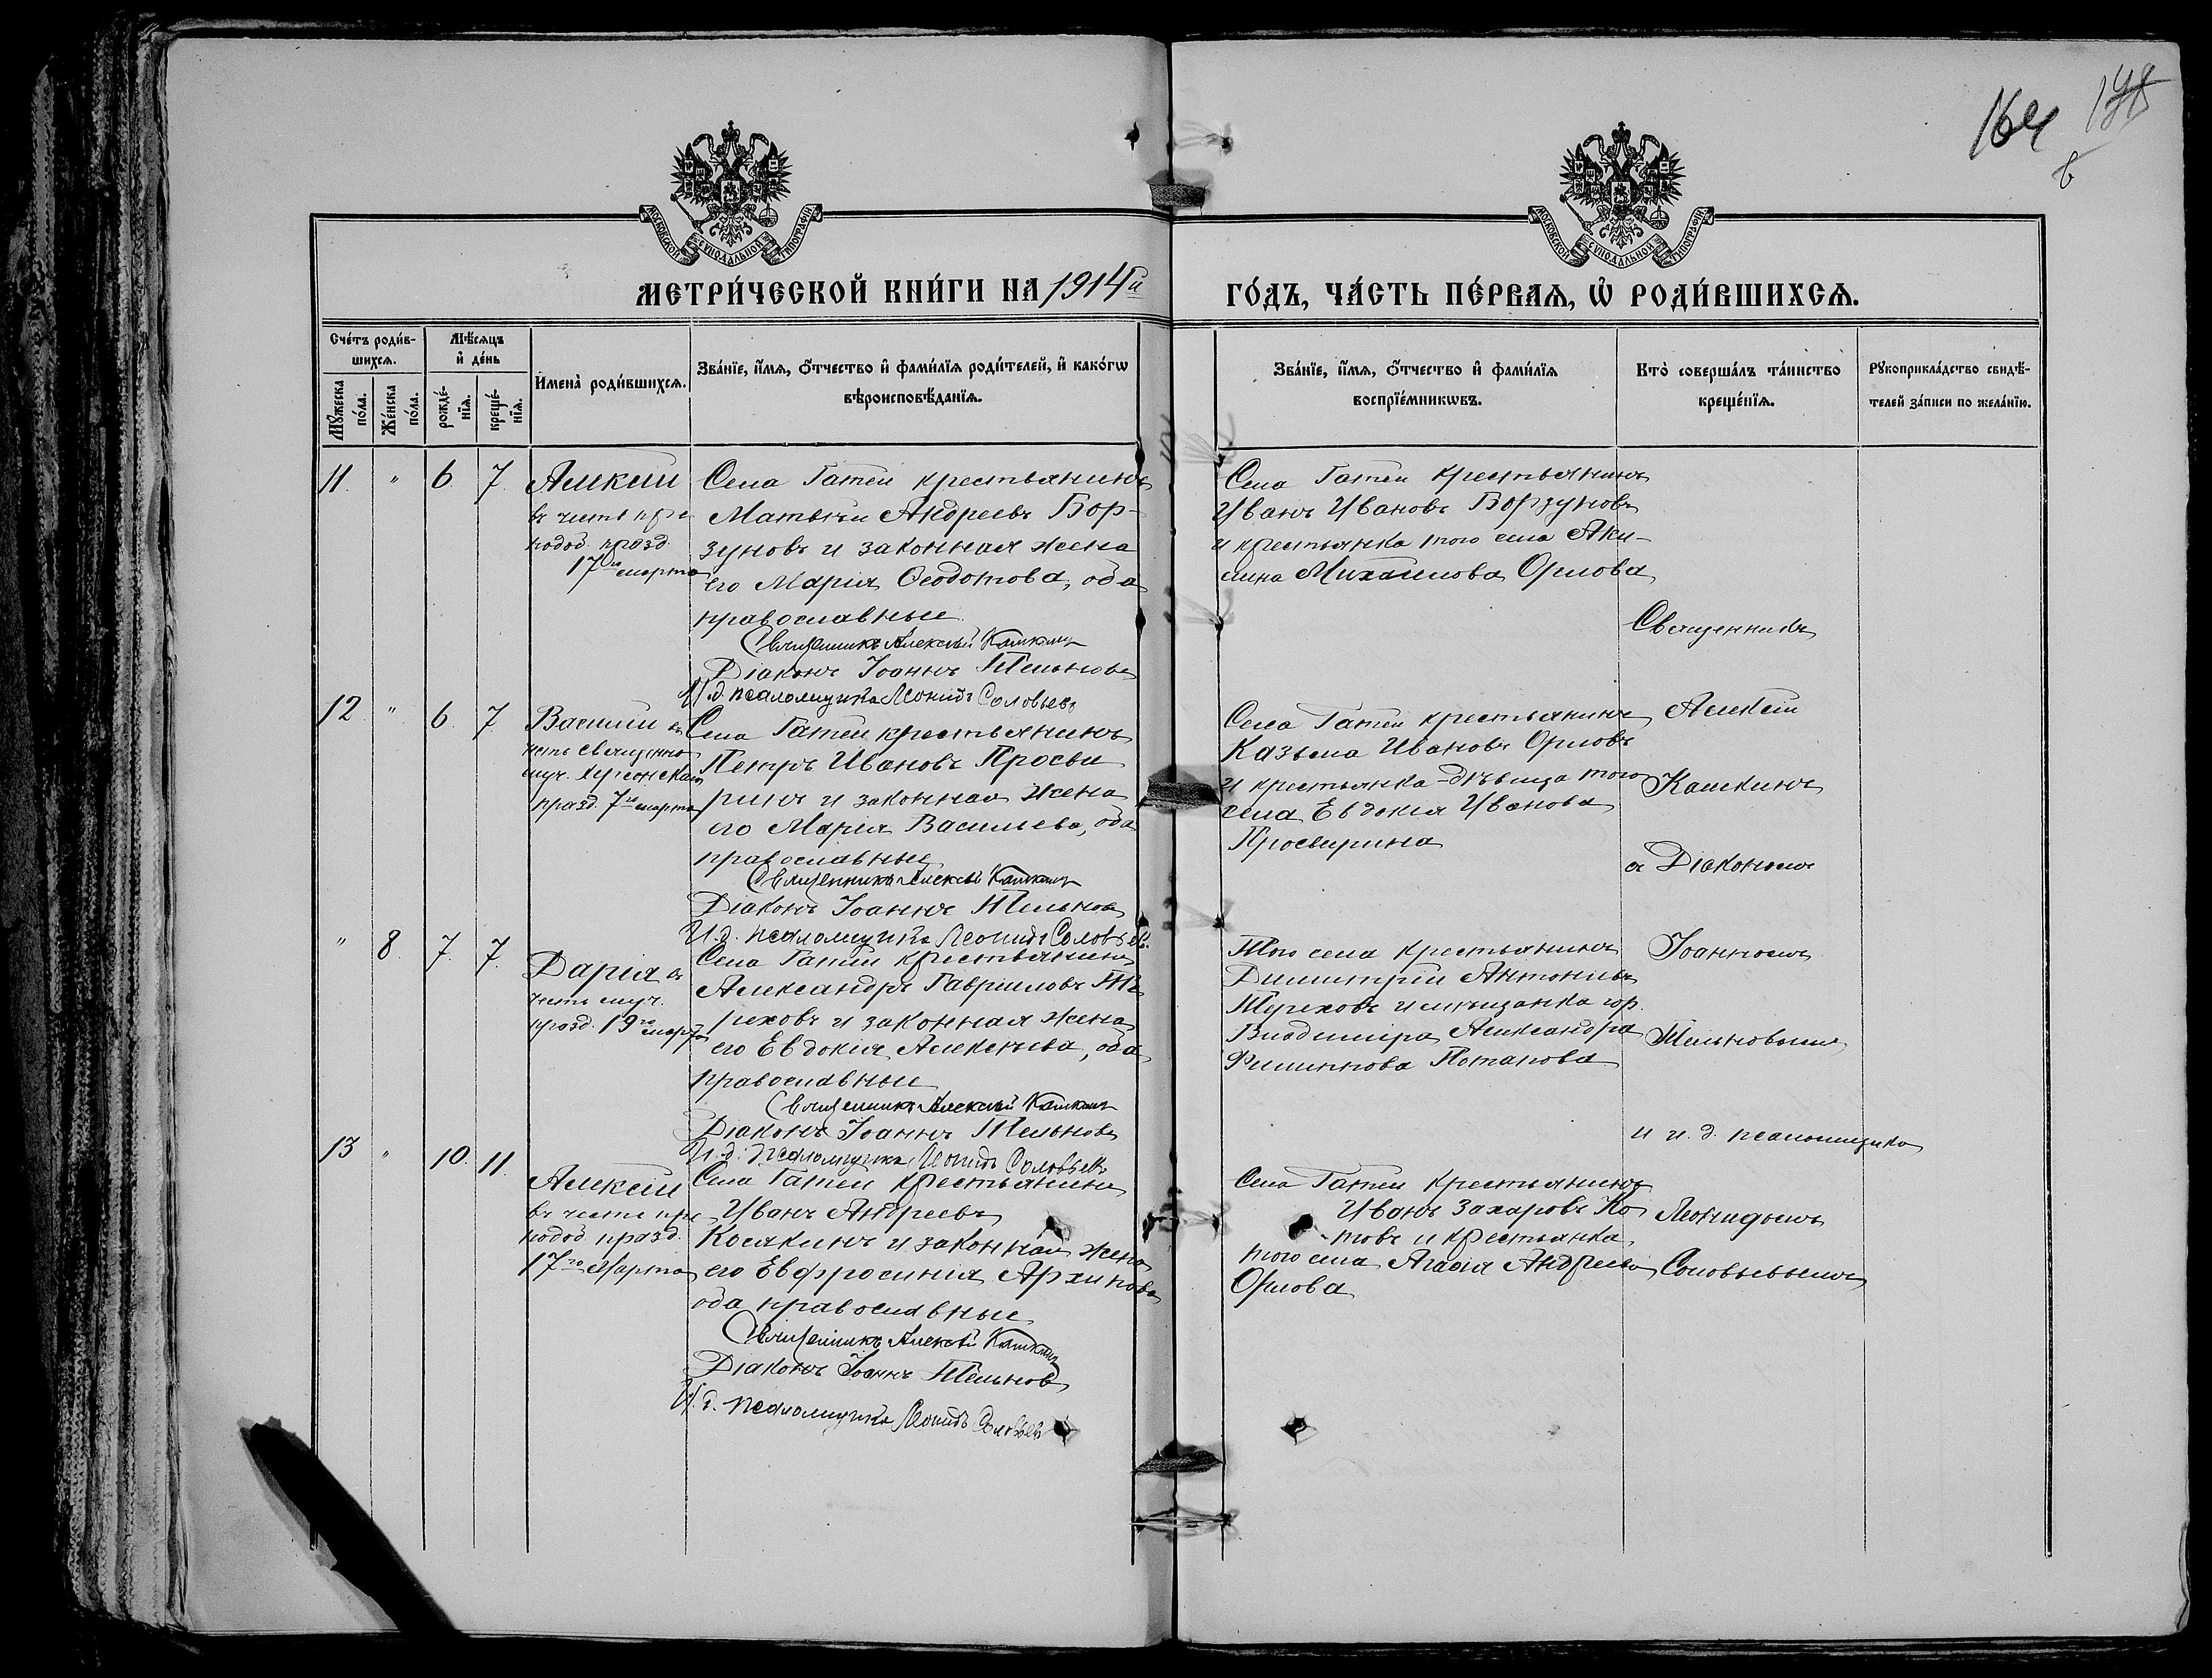 164 178
в
МОСКОВСКОЙ СѴНОДАЛЬНОЙ ТИПОГРАФІИ
МОСКОВСКОЙ СѴНОДАЛЬНОЙ ТИПОГРАФІИ
МЕТРИ́ЧЕСКОЙ КНИ́ГИ НА 1914й
ГО́ДЪ, ЧА́СТЬ ПЕ́РВАѦ, Ѡ҆ РОДИ́ВШИХСѦ.
Сче́тъ роди́в-
шихсѧ.
Мꙋ́жеска по́ла.
Же́нска по́ла.
Мѣ́сѧцъ
и҆ де́нь
рожде́-
нїѧ.
креще́-
нїѧ.
И҆мена̀ роди́вшихсѧ.
Зва́нїе, и҆́мѧ, ѻ҆́тчество и҆ фами́лїѧ роди́телей, и҆ како́гѡ
вѣроисповѣ́данїѧ.
Зва́нїе, и҆́мѧ, ѻ҆́тчество и҆ фами́лїѧ
воспрїе́мникѡвъ.
Кто̀ соверша́лъ та́инство
креще́нїѧ.
Рꙋкоприкла́дство свидѣ́-
телей за́писи по жела́нїю.
11. " 6. 7. Алексій
въ честь пре
подоб. празд.
17го марта
Села Гатей крестьянинъ
Матвѣй Андреевъ Бор-
зуновъ и законная жена
его Марія Ѳеодотова, оба
православные.
Священникъ Алексѣй Кашкинъ
Діаконъ Іоаннъ
И. д. псаломщика Леонидъ Соловьевъ
Села Гатей крестьянинъ
Иванъ Ивановъ Борзуновъ
и крестьянка того села Аки-
лина Михаилова Орлова
12 " 6. 7. Василій въ
честь священно
муч. Херсонскаго
празд. 7го марта
Села Гатей крестьянинъ
Петръ Ивановъ Просви
ринъ и законная жена
его Марія Васильева, оба
православные
Священникъ Алексѣй Кашкинъ
Діаконъ Іоаннъ
И. д. псаломщика Леонидъ Соловьевъ
Села Гатей крестьянинъ
Казьма Ивановъ Орловъ
и крестьянка-дѣвица того
села Евдокія Иванова
Просвирина
" 8. 7. 7. Дарія въ
честь муч.
празд. 19го марта
Села Гатей крестьянинъ
Александръ Гавриловъ
реховъ и законная жена
его Евдокія Алексѣева, оба
православные
Священникъ Алексѣй Кашкинъ
Діаконъ Іоаннъ
И. д. псаломщика Леонидъ Соловьевъ
Того села крестьянинъ
Димитрій Антоніевъ
и мѣщанка гор.
Владиміра Александра
Филиппова Потапова
13 " 10. 11. Алексій
въ честь пре
подоб. празд.
17го Марта
Села Гатей крестьянинъ
Иванъ Андреевъ
Косякинъ и законная жена
его Евфросинія Архипова
оба православные
Священникъ Алексѣй Кашкинъ
Діаконъ Іоаннъ
И. д. псаломщика Леонидъ Соловьевъ
Села Гатей крестьянинъ
Иванъ Захаровъ Ко
товъ и крестьянка
того села Агаѳія Андреева
Орлова
Священникъ
Алексій
Кашкинъ
съ Діакономъ
Іоанномъ
и и. д. псаломщика
Леонидомъ
Соловьевымъ